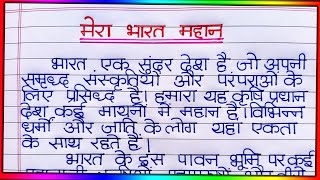 मेरा भारत महान
भारत एक सुंदर देश है जो अपनी
समृध्द संस्कृतियों और परंपराओ के
लिए प्रसिध्द है। हमारा यह कृषि प्रधान
देश कई मायनो में महान है। विभिन्न
धर्मों और जाति के लोग यहां एकता
के साथ रहते हैं।
भारत के इस पावन भूमि पर कई